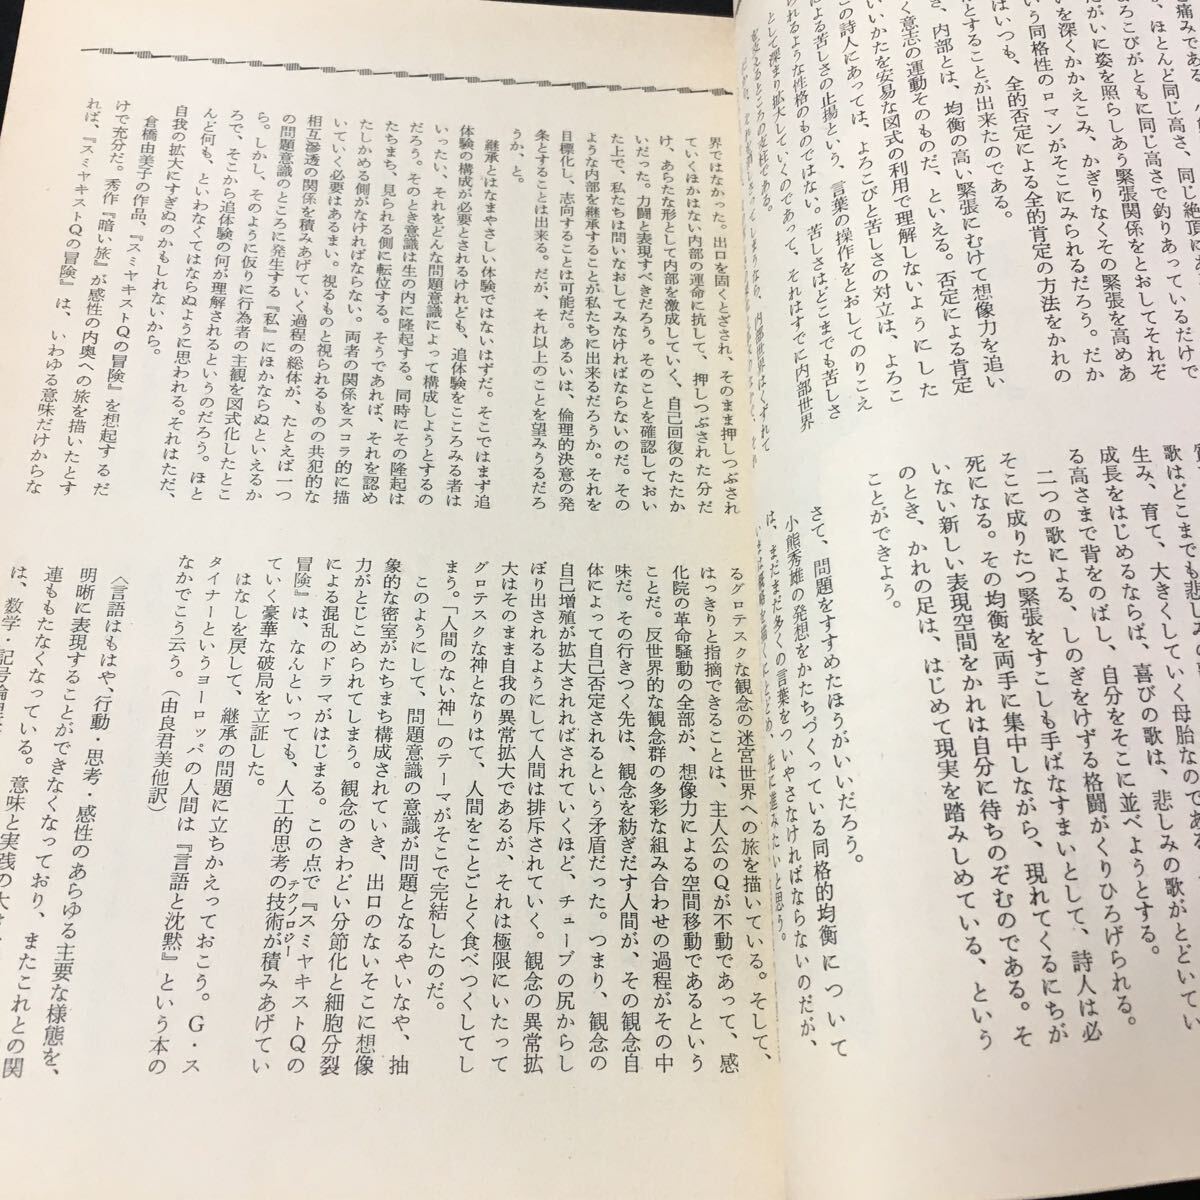 痛みである。
、ほとんど同じ高さ、同じ絶頂に
よろこびがともに同じ高さで釣りあっているだけで
がいに姿を照らしあう緊張関係をとおしてそれぞ
いを深くかかえこみ、かぎりなくその緊張を高めあ
いう同格性のロマンがそこにみられるだろう。だか
はいつも、全的否定による全的肯定の方法をかれの
とすることが出来たのである。
き、内部とは、均衡の高い緊張にむけて想像力を追い
く意志の運動そのものだ、といえる。否定による肯定
いいかたを安易な図式の利用で理解しないようにした
この詩人にあっては、よろこびと苦しさの対立は、よろこ
による苦しさの止揚という、言葉の操作をとおしてのりこえ
られるような性格のものではない。苦しさはどこまでも苦しさ
として深まり拡大していくのであって、それはすでに内部世界
を支えるところの支柱である。
歌はどこまでも悲しみの
生み、育て、大きくしていく母胎なのである。
成長をはじめるならば、喜びの歌は、悲しみの歌がとどいてい
る高さまで背をのばし、自分をそこに並べようとする。
二つの歌による、しのぎをけずる格闘がくりひろげられる。
そこに成りたつ緊張をすこしも手ばなすまいとして、詩人は必
死になる。その均衡を両手に集中しながら、現れてくるにちが
いない新しい表現空間をかれは自分に待ちのぞむのである。そ
のとき、かれの足は、はじめて現実を踏みしめている、という
ことができよう。
さて、問題をすすめたほうがいいだろう。
小熊秀雄の発想をかたちづくっている同格的均衡について
は、まだまだ多くの言葉をついやさなければならないのだが、
いまは概略を描くにとどめ、先に進みたいと思う。
界ではなかった。出口を固くとざされ、そのまま押しつぶされ
ていくほかはない内部の運命に抗して、押しつぶされた分だ
け、あらたな形として内部を激成していく、自己回復のたたか
いだった。力闘と表現すべきだろう。そのことを確認しておい
た上で、私たちは問いなおしてみなければならないのだ。その
ような内部を継承することが私たちに出来るだろうか。それを
目標化し、志向することは可能だ。あるいは、倫理的決意の発
条とすることは出来る。だが、それ以上のことを望みうるだろ
うか、と。
継承とはなまやさしい体験ではないはずだ。そこではまず追
体験の構成が必要とされるけれども、追体験をこころみる者は
いったい、それをどんな問題意識によって構成しようとするの
だろう。そのとき意識は生の内に隆起する。同時にその隆起は
たちまち、見られる側に転位する。そうであれば、それを認め
たしかめる側がなければならない。両者の関係をスコラ的に描
いていく必要はあるまい。視るものと視られるものの共犯的な
相互滲透の関係を積みあげていく過程の総体が、たとえば一つ
の問題意識のところに発生する『私』にほかならぬといえるか
ら。しかし、そのように仮りに行為者の主観を図式化したとこ
ろで、そこから追体験の何が理解されるというのだろう。ほと
んど何も、といわなくてはならぬように思われる。それはただ、
自我の拡大にすぎぬのかもしれないから。
倉橋由美子の作品、『スミヤキストQの冒険』を想起するだ
けで充分だ。秀作『暗い旅』が感性の内奥への旅を描いたとす
れば、『スミヤキストQの冒険』は、いわゆる意味だけからな
るグロテスクな観念の迷宮世界への旅を描いている。そして、
はっきりと指摘できることは、主人公のQが不動であって、感
化院の革命騒動の全部が、想像力による空間移動であるという
ことだ。反世界的な観念群の多彩な組み合わせの過程がその中
味だ。その行きつく先は、観念を紡ぎだす人間が、その観念自
体によって自己否定されるという矛盾だった。つまり、観念の
自己増殖が拡大されればされていくほど、チューブの尻からし
ぼり出されるようにして人間は排斥されていく。観念の異常拡
大はそのまま自我の異常拡大であるが、それは極限にいたって
グロテスクな神となりはて、人間をことごとく食べつくしてし
まう。「人間のない神」のテーマがそこで完結したのだ。
このようにして、問題意識の意識が問題となるやいなや、抽
象的な密室がたちまち構成されていき、出口のないそこに想像
力がとじこめられてしまう。観念のきわどい分節化と細胞分裂
による混乱のドラマがはじまる。この点で『スミヤキストQの
冒険』は、なんといっても、人工的思考の技術が積みあげてい
テクノロジー
ていく豪華な破局を立証した。
はなしを戻して、継承の問題に立ちかえっておこう。G・ス
タイナーというヨーロッパの人間は『言語と沈黙』という本の
なかでこう云う。（由良君美他訳）
〈言語はもはや、行動・思考・感性のあらゆる主要な様態を、
明晰に表現することができなくなっており、またこれとの関
連ももたなくなっている。意味と実践の大
は、数学・記号論理